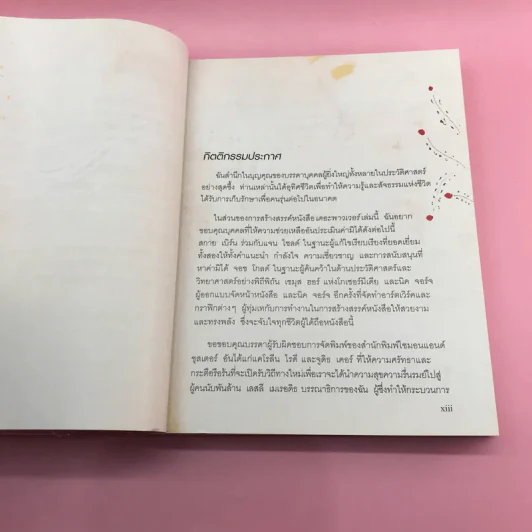 กิตติกรรมประกาศ
ฉันสำนึกในบุญคุณของบรรดาบุคคลผู้ยิ่งใหญ่ทั้งหลายในประวัติศาสตร์
อย่างสุดซึ้ง ท่านเหล่านั้นได้อุทิศชีวิตเพื่อทำให้ความรู้และสัจธรรมแห่งชีวิต
ได้รับการเก็บรักษาเพื่อคนรุ่นต่อไปในอนาคต
ในส่วนของการสร้างสรรค์หนังสือ เดอะพาวเวอร์ เล่มนี้ ฉันอยาก
ขอบคุณบุคคลที่ให้ความช่วยเหลืออันประเมินค่ามิได้ดังต่อไปนี้
สกาย เบิร์น ร่วมกับแจน ไชลด์ ในฐานะผู้แก้ไขเรียบเรียงที่ยอดเยี่ยม
ทั้งสองให้ทั้งคำแนะนำ กำลังใจ ความเชี่ยวชาญ และการสนับสนุนที่
หาค่ามิได้ จอช โกลด์ ในฐานะผู้ค้นคว้าในด้านประวัติศาสตร์และ
วิทยาศาสตร์อย่างพิถีพิถัน เชมุส ฮอร์ แห่งโกเซอร์มีเดีย และนิค จอร์จ
ผู้ออกแบบจัดหน้าหนังสือ และนิค จอร์จ อีกครั้งที่จัดทำอาร์ตเวิร์คและ
กราฟิกต่างๆ ผู้ทุ่มเทกับการทำงานในการสร้างสรรค์หนังสือให้สวยงาม
และทรงพลัง ซึ่งจะจับใจทุกชีวิตผู้ได้ถือหนังสือนี้
ขอขอบคุณบรรดาผู้รับผิดชอบการจัดพิมพ์ของสำนักพิมพ์ไซมอนแอนด์
ชุสเตอร์ อันได้แก่แคโรลีน ไรดี และจูดิธ เคอร์ ที่ให้ความศรัทธาและ
กระตือรือร้นที่จะเปิดรับวิถีทางใหม่เพื่อเราจะได้นำความสุขความรื่นรมย์ไปสู่
ผู้คนนับพันล้าน เลสลี เมเรอดิธ บรรณาธิการของฉัน ผู้ซึ่งทำให้กระบวนการ
xiii